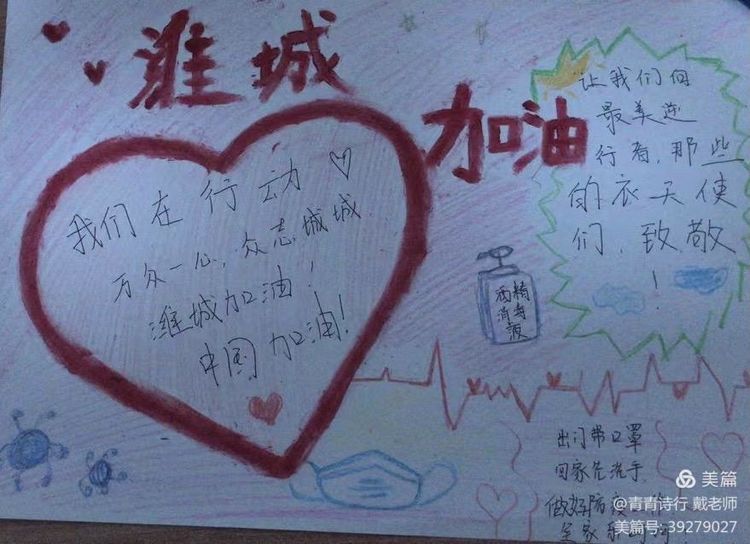 潍城
加油
我们在行动
万众一心,众志城城
潍城加油!
中国加油!
让我们向
最美逆
行者,那些
的衣天使
们,致敬
!
酒精
消毒
液
出门带口罩
回家先洗手
做好防疫
美篇
@青青诗行 戴老师
美篇号: 39279027